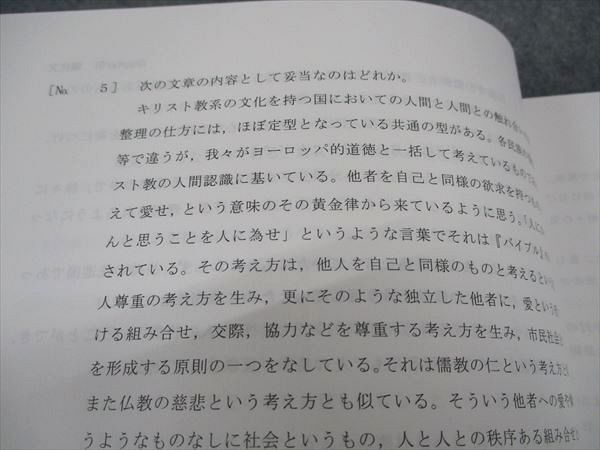 [№ 5] 次の文章の内容として妥当なのはどれか。
キリスト教系の文化を持つ国においての人間と人間との触れ合い
整理の仕方には，ほぼ定型となっている共通の型がある。各民族
等で違うが，我々がヨーロッパ的道徳と一括して考えているもので
スト教の人間認識に基いている。他者を自己と同様の欲求を持つ
えて愛せ，という意味のその黄金律から来ているように思う。「人に
んと思うことを人に為せ」というような言葉でそれは『バイブル』
されている。その考え方は，他人を自己と同様のものと考えるという
人尊重の考え方を生み，更にそのような独立した他者に，愛という
ける組み合せ，交際，協力などを尊重する考え方を生み，市民社会
を形成する原則の一つをなしている。それは儒教の仁という考え方
また仏教の慈悲という考え方とも似ている。そういう他者への愛
うようなものなしに社会というもの，人と人との秩序ある組み合せ